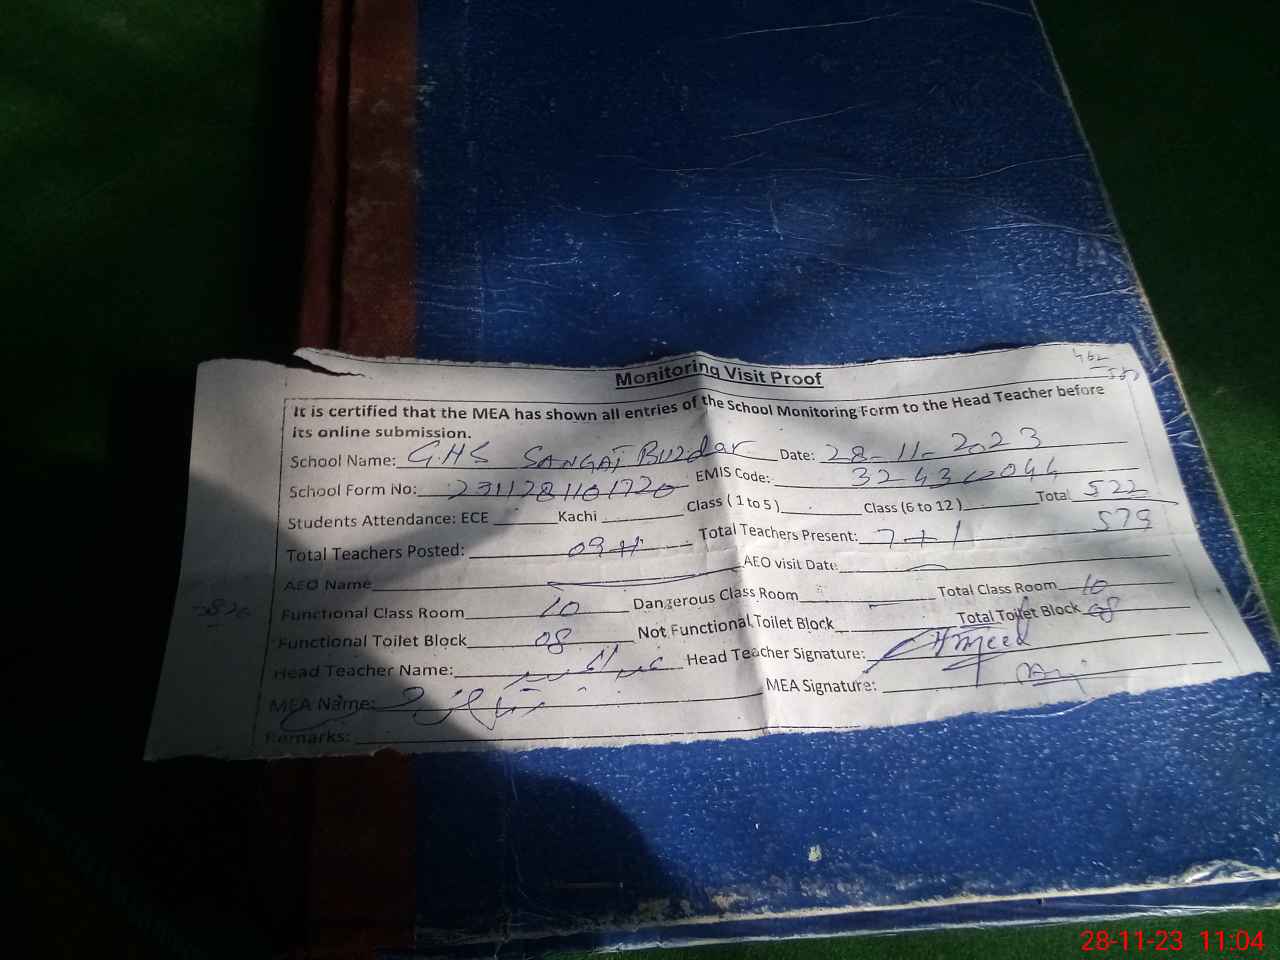 Monitoring Visit Proof
It is certified that the MEA has shown all entries of the School Monitoring Form to the Head Teacher before
its online submission.
School Name: GHS SANGAT Buzdar Date: 28-11-2023
School Form No: 2311281101720 EMIS Code:
Students Attendance: ECE Kachi Class ( 1 to 5 ) Class (6 to 12 ) Total 522
579
Total Teachers Posted: Total Teachers Present: 7+1
AEO Name AEO visit Date
Functional Class Room 10 Dangerous Class Room Total Class Room 10
Functional Toilet Block 08 Not Functional Toilet Block Total Toilet Block 08
Head Teacher Name: Head Teacher Signature: Hmeed
MEA Name: MEA Signature:
Remarks:
28-11-23 11:04